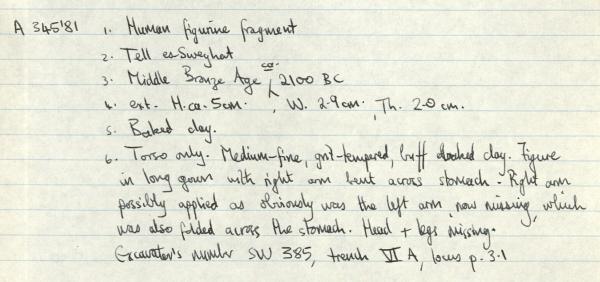 A 345'81 1. Human figurine fragment
2. Tell es-Sweyhat
3. Middle Bronze Age ca. 2100 BC
4. ext. H. ca. 5cm. , W. 2.9cm. , Th. 2.0 cm.
5. Baked clay.
6. Torso only. Medium-fine, grit-tempered, buff clay. Figure
in long gown with right arm bent across stomach. Right arm
possibly applied as obviously was the left arm, now missing, which
was also folded across the stomach. Head + legs missing.
Excavator's number SW 385, trench VI A, locus p. 3.1